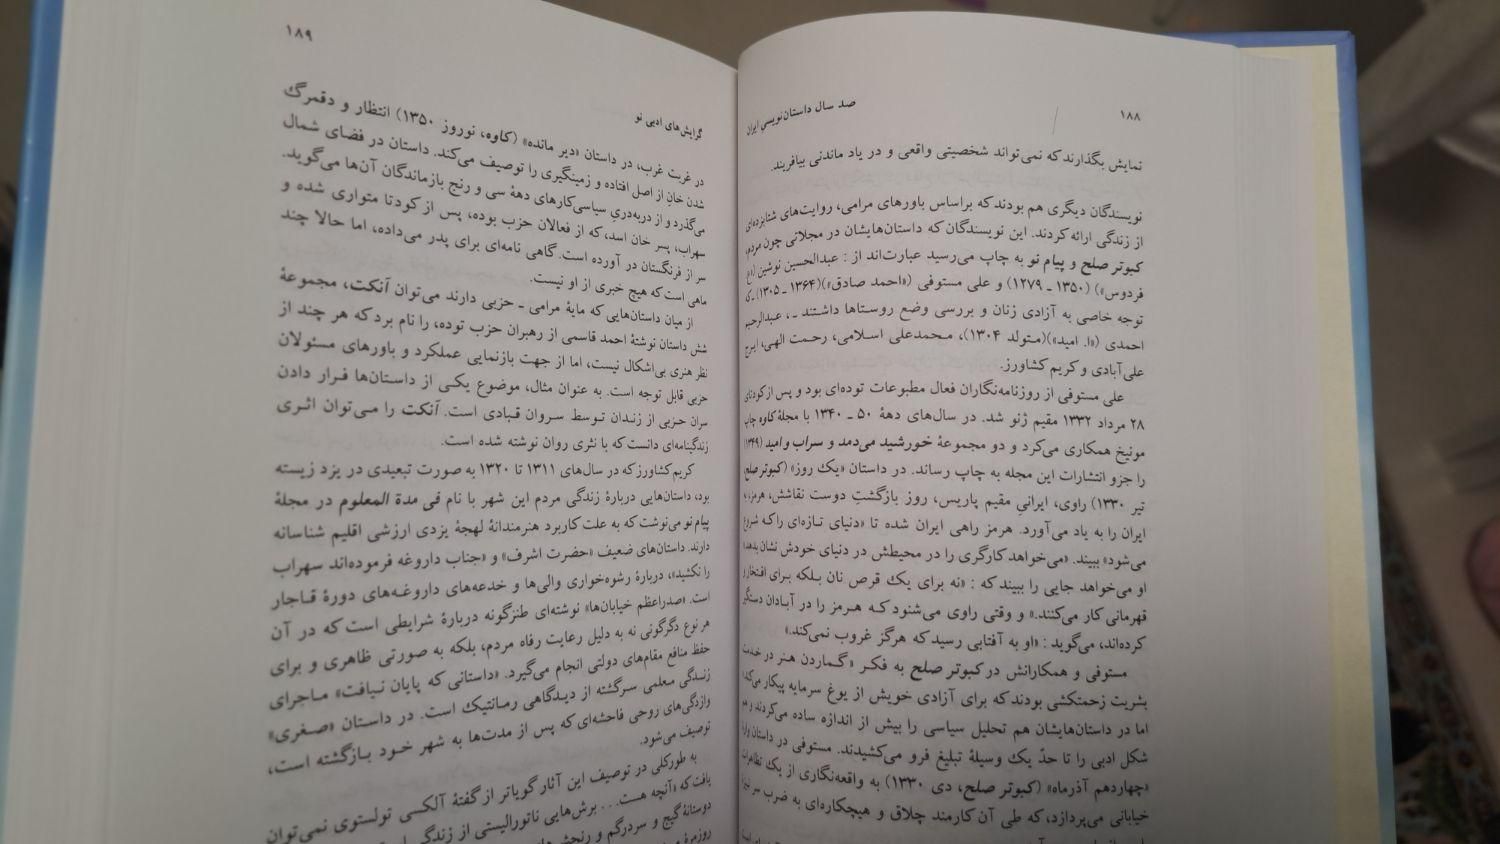 ۱۸۸
صد سال داستان‌نویسی ایران
نمایش بگذارند که نمی‌تواند شخصیتی واقعی و در یاد ماندنی بیافریند.
نویسندگان دیگری هم بودند که براساس باورهای مرامی، روایت‌های شتابزده‌ای
از زندگی ارائه کردند. این نویسندگان که داستان‌هایشان در مجلاتی چون مردم،
کبوتر صلح و پیام نو به چاپ می‌رسید عبارت‌اند از : عبدالحسین نوشین («ع
فردوس») (۱۳۵۰ ـ ۱۲۷۹) و علی مستوفی («احمد صادق»)(۱۳۶۴ ـ ۱۳۰۵) ـ که
توجه خاصی به آزادی زنان و بررسی وضع روستاها داشتند ـ ، عبدالرحیم
احمدی («ا. امید»)(متولد ۱۳۰۴)، محمدعلی اسلامی، رحمت الهی، ایرج
علی‌آبادی و کریم کشاورز.
علی مستوفی از روزنامه‌نگاران فعال مطبوعات توده‌ای بود و پس از کودتای
۲۸ مرداد ۱۳۳۲ مقیم ژنو شد. در سال‌های دههٔ ۵۰ ـ ۱۳۴۰ با مجلهٔ کاوه چاپ
مونیخ همکاری می‌کرد و دو مجموعهٔ خورشید می‌دمد و سراب و امید (۱۳۴۹)
را جزو انتشارات این مجله به چاپ رساند. در داستان «یک روز» (کبوتر صلح،
تیر ۱۳۳۰) راوی، ایرانیِ مقیم پاریس، روز بازگشتِ دوست نقاشش، هرمز، به
ایران را به یاد می‌آورد. هرمز راهی ایران شده تا «دنیای تازه‌ای را که شروع
می‌شود» ببیند. «می‌خواهد کارگری را در محیطش در دنیای خودش نشان بدهد»
او می‌خواهد جایی را ببیند که : «نه برای یک قرص نان بلکه برای افتخار و
قهرمانی کار می‌کنند.» و وقتی راوی می‌شنود که هرمز را در آبادان دستگیر
کرده‌اند، می‌گوید : «او به آفتابی رسید که هرگز غروب نمی‌کند.»
مستوفی و همکارانش در کبوتر صلح به فکر «گماردن هنر در خدمت
بشریت زحمتکشی بودند که برای آزادی خویش از یوغ سرمایه پیکار می‌کند»
اما در داستان‌هایشان هم تحلیل سیاسی را بیش از اندازه ساده می‌کردند و هم
شکل ادبی را تا حدّ یک وسیلهٔ تبلیغ فرو می‌کشیدند. مستوفی در داستان وارهٔ
«چهاردهم آذرماه» (کبوتر صلح، دی ۱۳۳۰) به واقعه‌نگاری از یک تظاهرات
خیابانی می‌پردازد، که طی آن کارمند چلاق و هیچکاره‌ای به ضرب سر نیزهٔ
۱۸۹
گرایش‌های ادبی نو
در غربت غرب، در داستان «دیر مانده» (کاوه، نوروز ۱۳۵۰) انتظار و دقمرگ
شدن خان از اصل افتاده و زمینگیری را توصیف می‌کند. داستان در فضای شمال
می‌گذرد و از دربه‌دریِ سیاسی‌کارهای دههٔ سی و رنج بازماندگان آن‌ها می‌گوید.
سهراب، پسر خان اسد، که از فعالان حزب بوده، پس از کودتا متواری شده و
سر از فرنگستان در آورده است. گاهی نامه‌ای برای پدر می‌داده، اما حالا چند
ماهی است که هیچ خبری از او نیست.
از میان داستان‌هایی که مایهٔ مرامی ـ حزبی دارند می‌توان آنکت، مجموعهٔ
شش داستان نوشتهٔ احمد قاسمی از رهبران حزب توده، را نام برد که هر چند از
نظر هنری بی‌اشکال نیست، اما از جهت بازنمایی عملکرد و باورهای مسئولان
حزبی قابل توجه است. به عنوان مثال، موضوع یکی از داستان‌ها فرار دادن
سران حزبی از زندان توسط سروان قبادی است. آنکت را می‌توان اثری
زندگینامه‌ای دانست که با نثری روان نوشته شده است.
کریم کشاورز که در سال‌های ۱۳۱۱ تا ۱۳۲۰ به صورت تبعیدی در یزد زیسته
بود، داستان‌هایی دربارهٔ زندگی مردم این شهر با نام فی مدة المعلوم در مجلهٔ
پیام نو می‌نوشت که به علت کاربرد هنرمندانهٔ لهجهٔ یزدی ارزشی اقلیم شناسانه
دارند. داستان‌های ضعیف «حضرت اشرف» و «جناب داروغه فرموده‌اند سهراب
را نکشید»، دربارهٔ رشوه‌خواری والی‌ها و خدعه‌های داروغه‌های دورهٔ قاجار
است. «صدراعظم خیابان‌ها» نوشته‌ای طنزگونه دربارهٔ شرایطی است که در آن
هر نوع دگرگونی نه به دلیل رعایت رفاه مردم، بلکه به صورتی ظاهری و برای
حفظ منافع مقام‌های دولتی انجام می‌گیرد. «داستانی که پایان نیافت» ماجرای
زندگی معلمی سرگشته از دیدگاهی رمانتیک است. در داستان «صغری»
وازدگی‌های روحی فاحشه‌ای که پس از مدت‌ها به شهر خود بازگشته است،
توصیف می‌شود.
به طورکلی در توصیف این آثار گویاتر از گفتهٔ آلکسی تولستوی نمی‌توان
یافت که «آنچه هست... برش‌هایی ناتورالیستی از زندگی
دوستانهٔ گیج و سردرگم و
روزمرهٔ